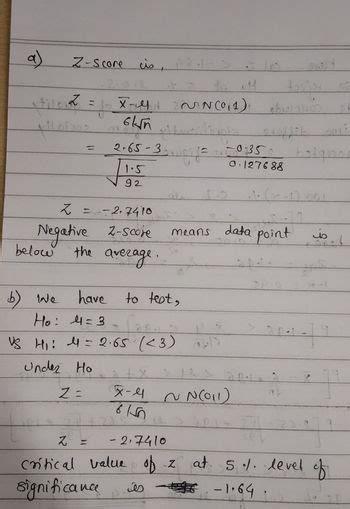 a) Z-score is,
Z = x̄-μ / σ/√n ~ N(0,1)
= 2.65 - 3 / √(1.5/92) = -0.35 / 0.127688
Z = -2.7410
Negative Z-score means data point is
below the average.
b) We have to test,
H0: μ = 3
Vs H1: μ = 2.65 (<3)
Under H0
Z = x̄-μ / σ/√n ~ N(0,1)
Z = -2.7410
critical value of z at 5 % level of
significance is -1.64 .